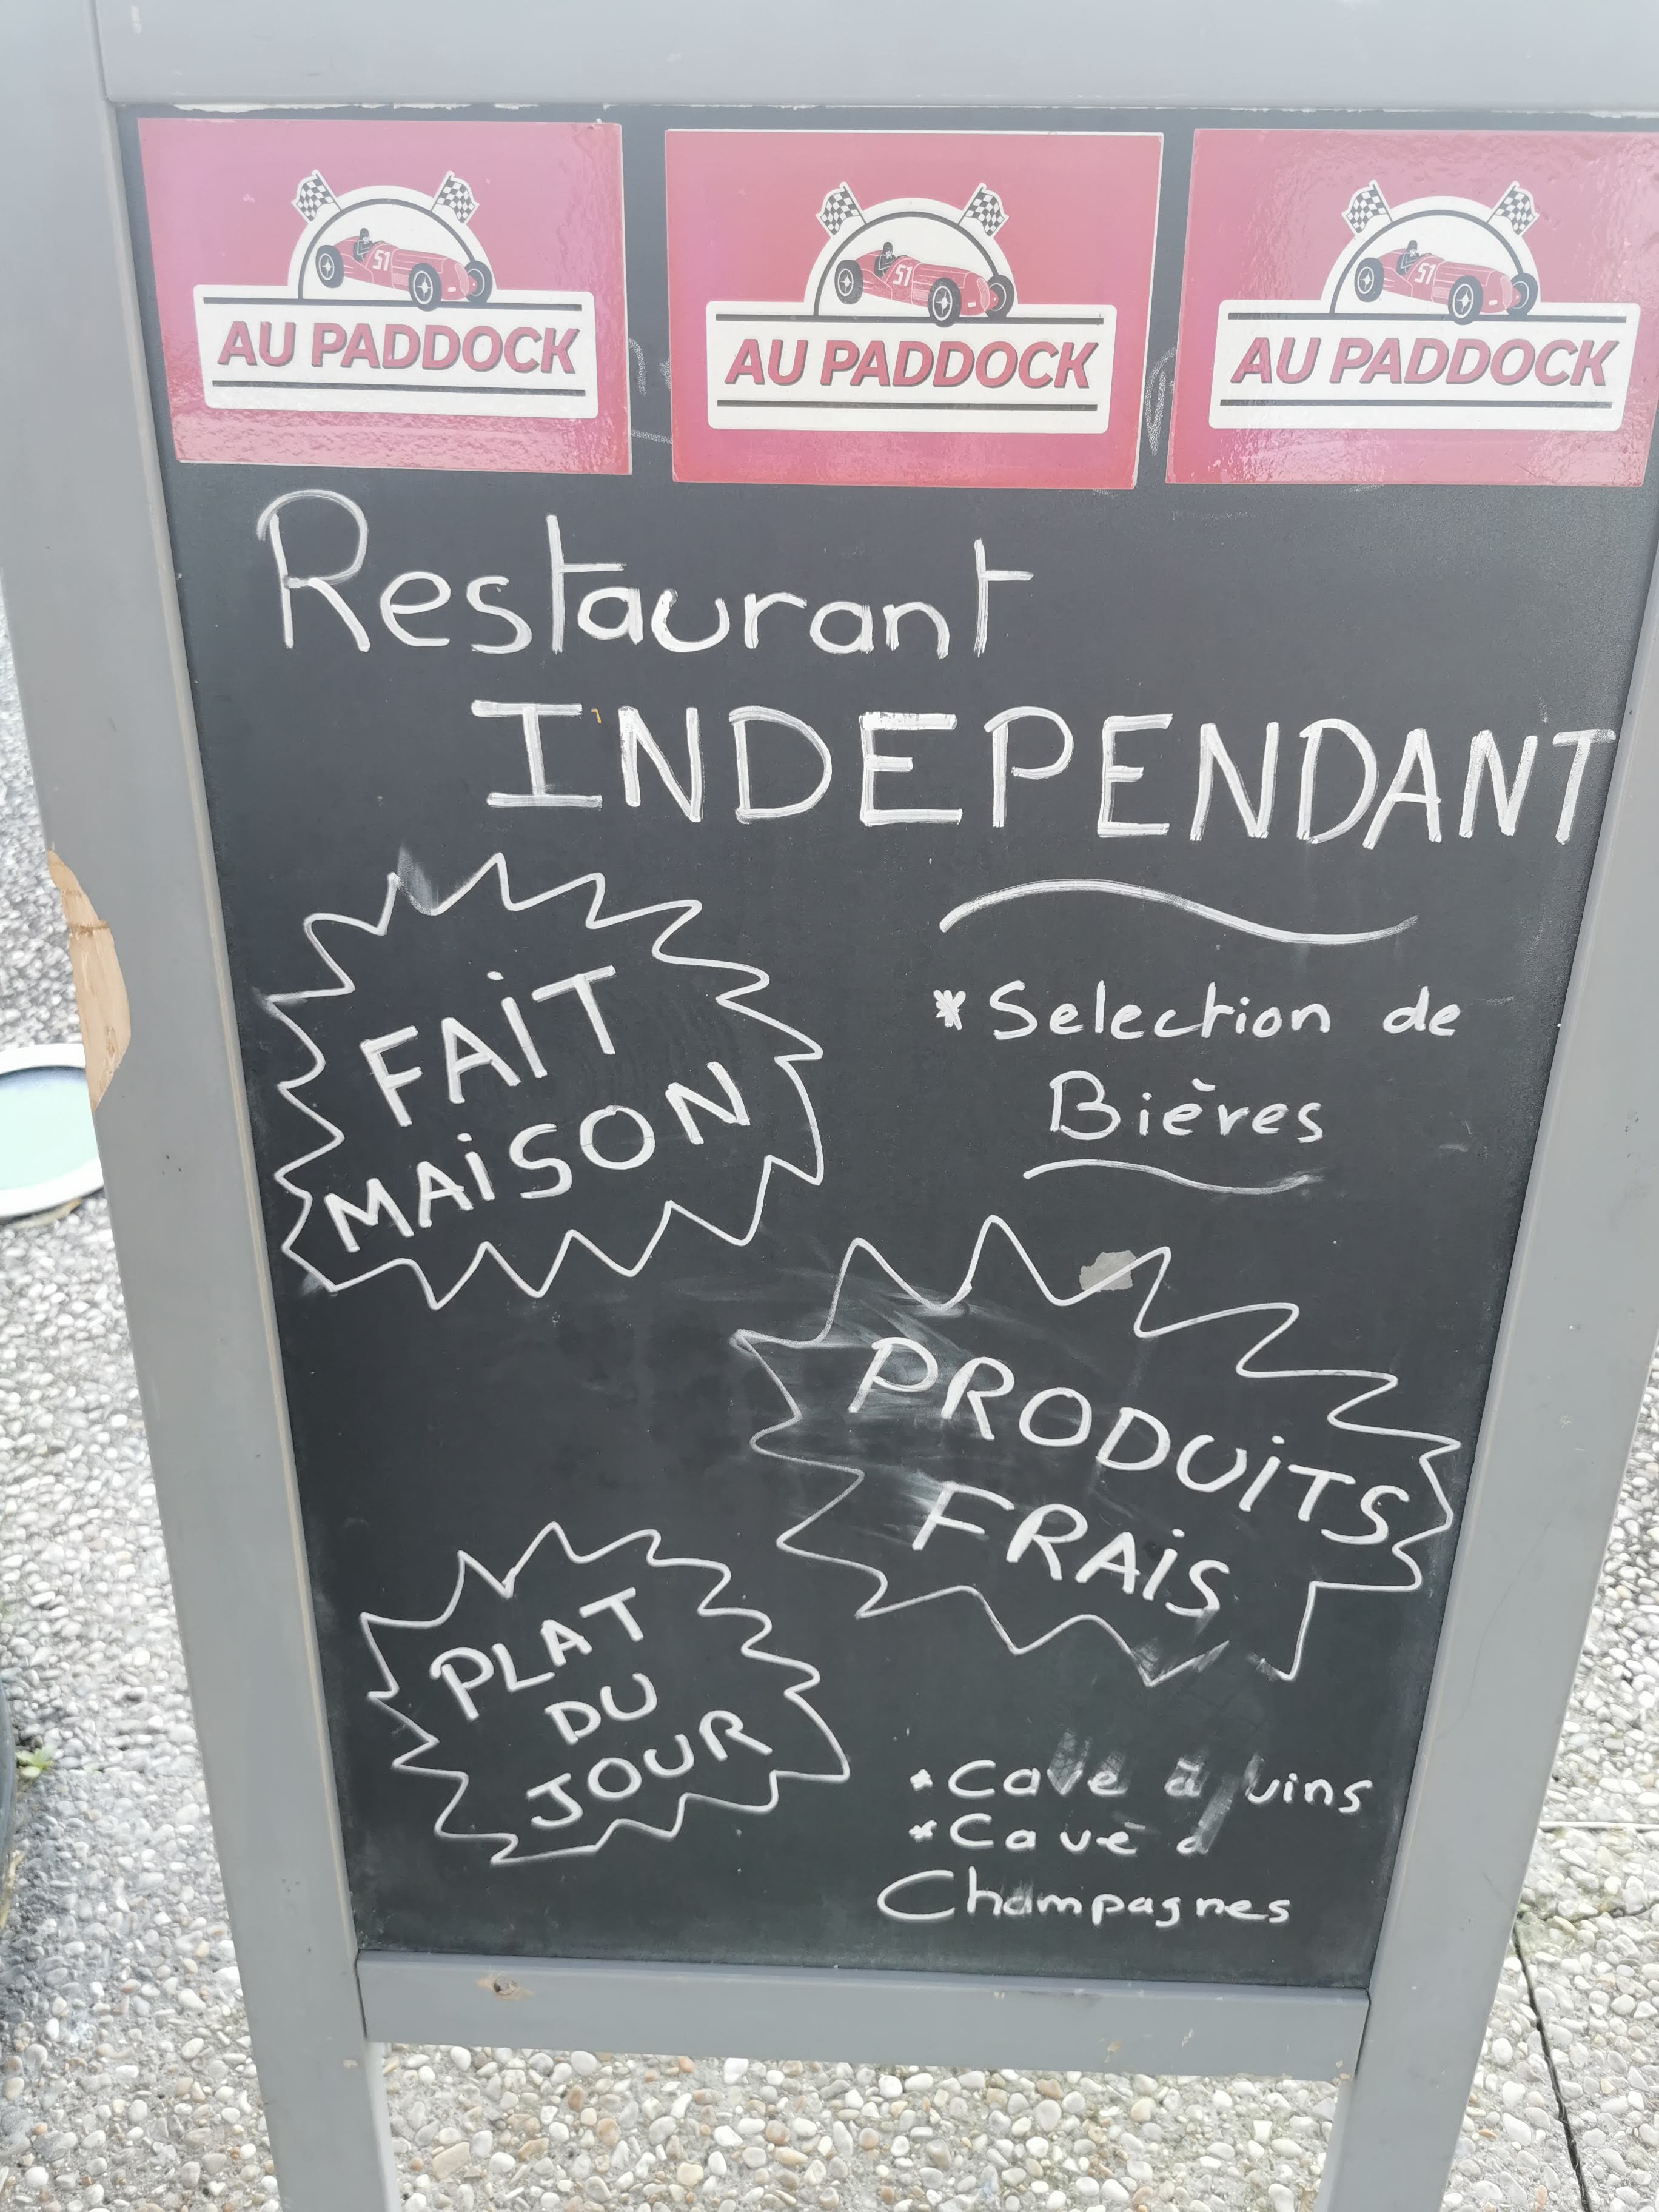 AU PADDOCK
51
AU PADDOCK
51
AU PADDOCK
51
Restaurant
INDEPENDANT
FAIT
MAISON
*Selection de
Bières
PRODUITS
FRAIS
PLAT
DU
JOUR
*Cave à vins
*Cave à
Champagnes